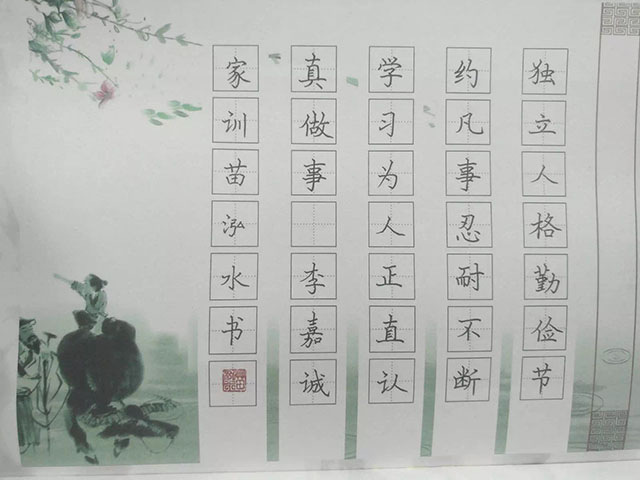 独立人格勤俭节
约凡事忍耐不断
学习为人正直认
真做事 李嘉诚
家训苗泓水书